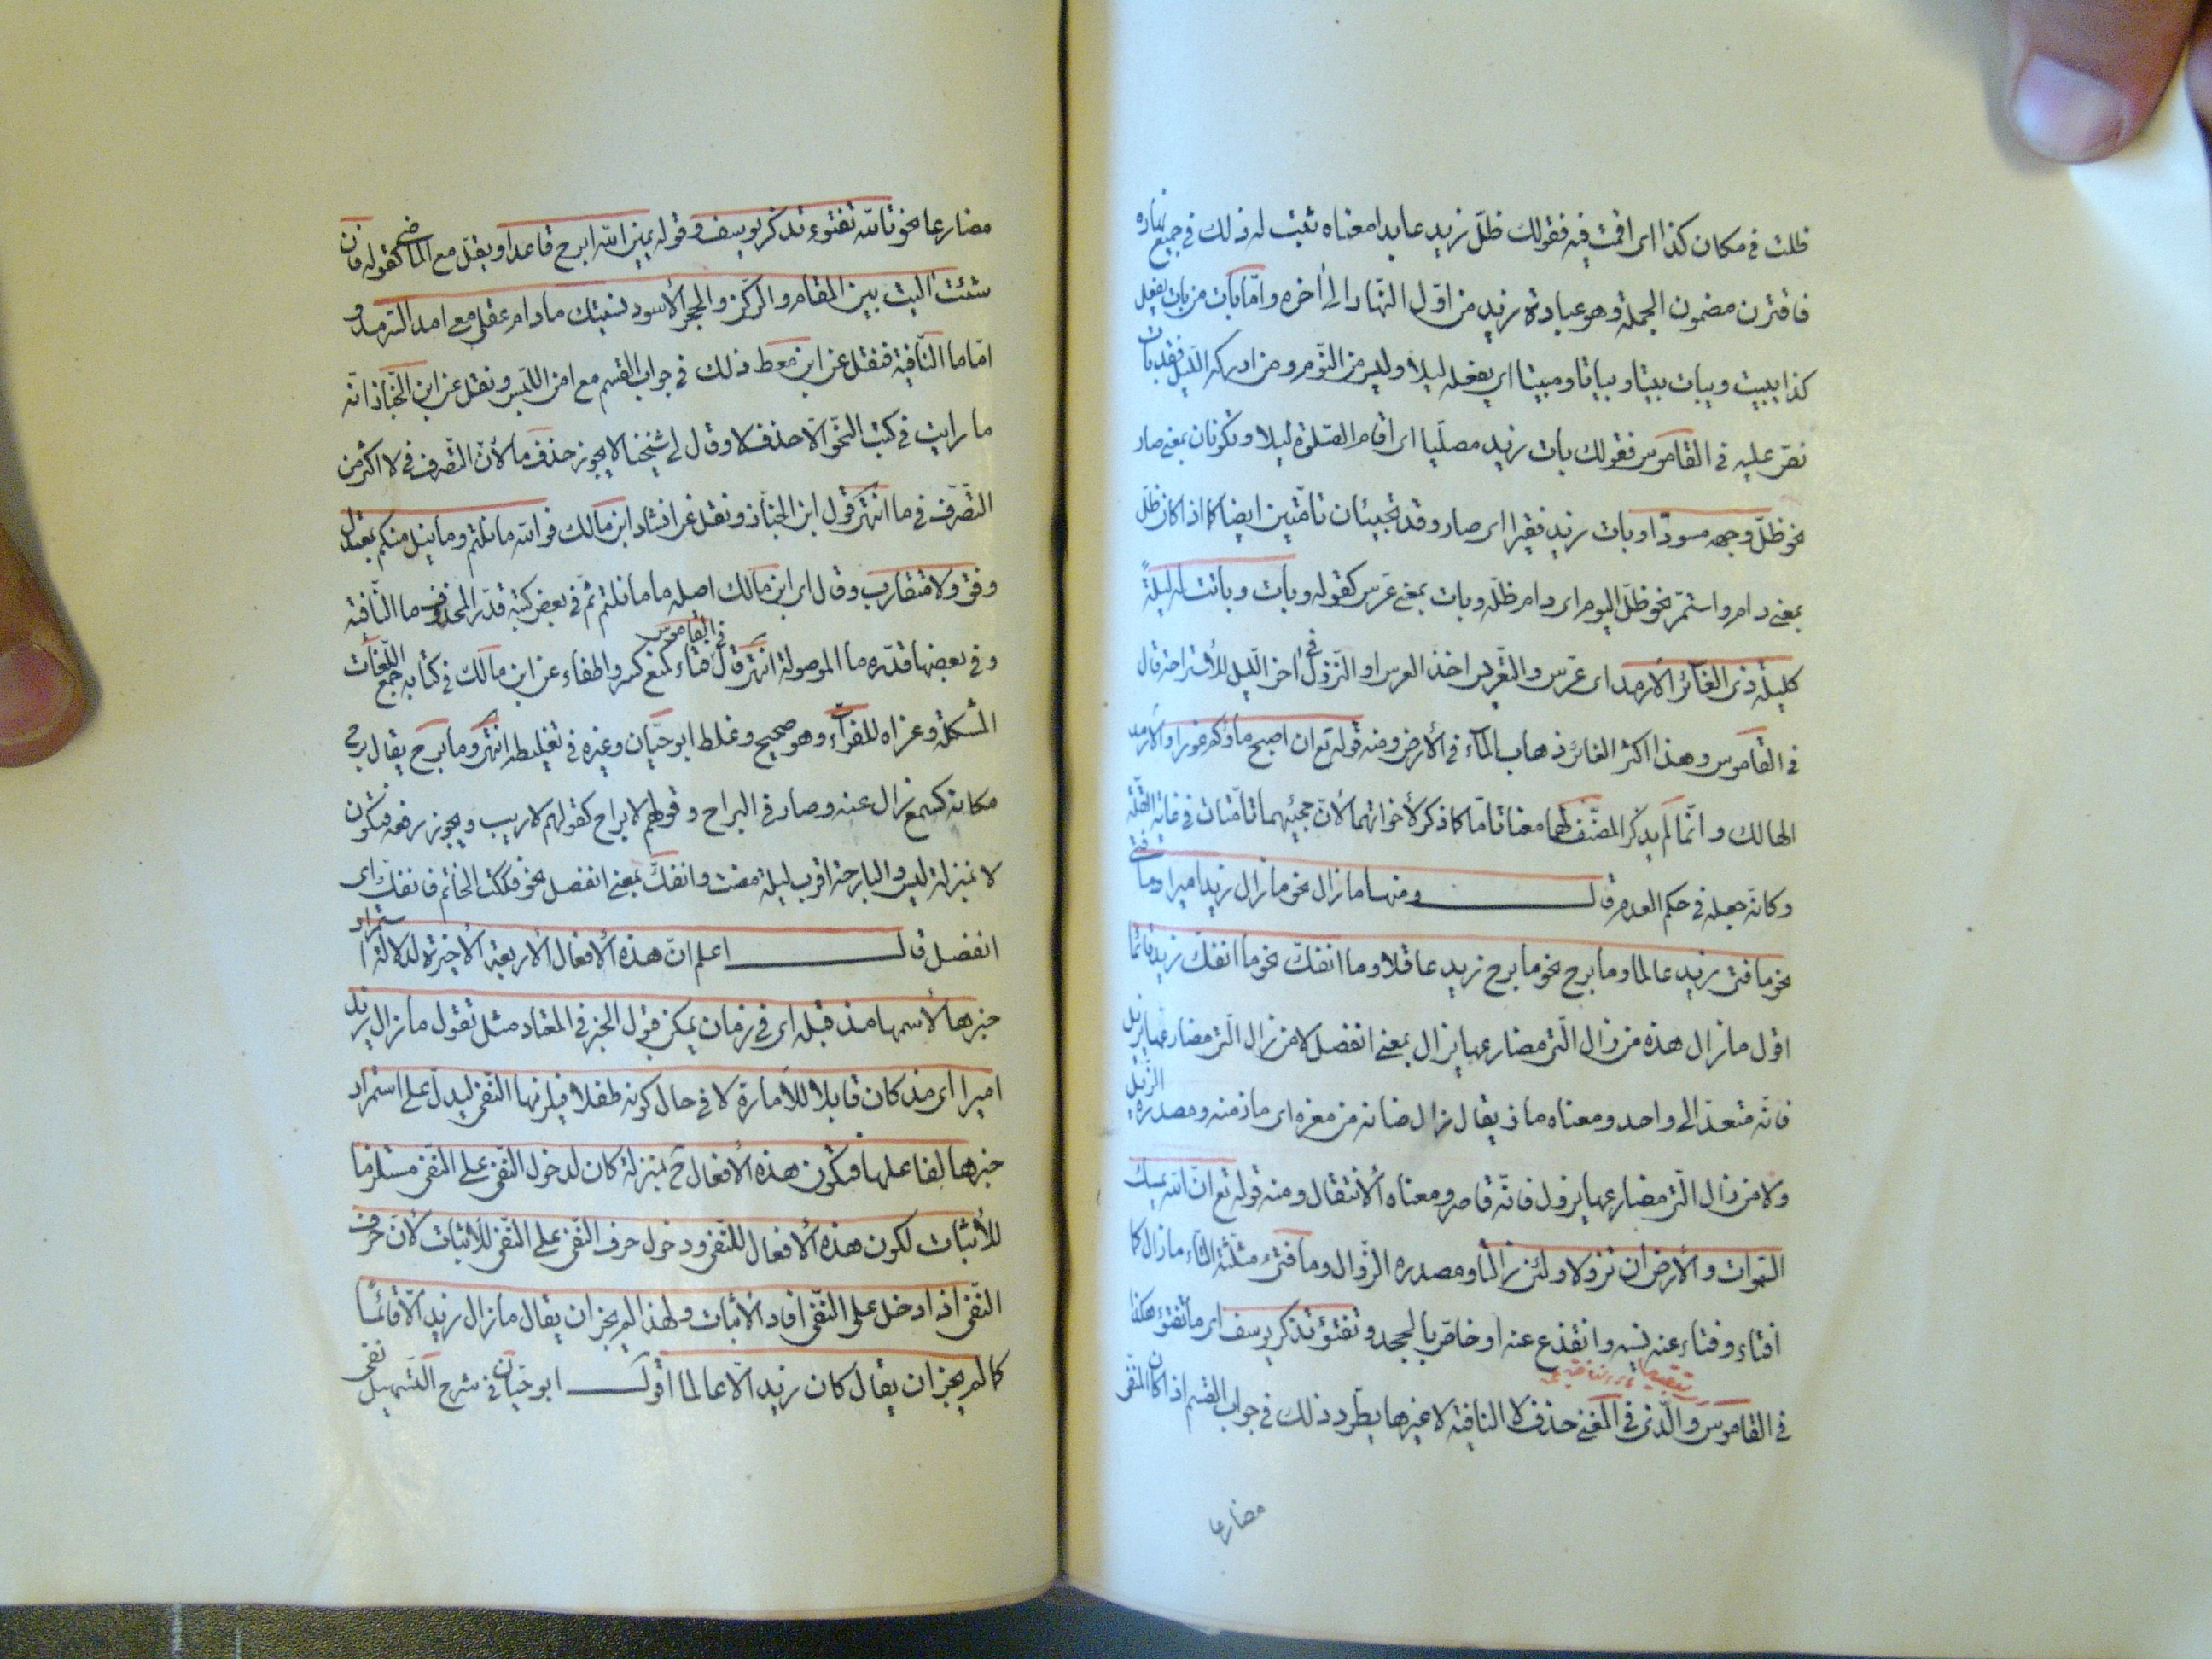 ظلت في مكان كذا اى اقمت فيه فقولك ظلّ زيد عابدا معناه ثبت له ذلك في جميع نهاره
فاقترن مضمون الجملة وهو عبادة زيد من اوّل النّهار الى اخره وامّا بات من بات يفعل
كذا يبيت ويبات بيتا وبياتا ومبيتا اى يفعله ليلا وليس من النّوم ومن ادركه اللّيل فقد بات
نصّ عليه في القاموس فقولك بات زيد مصلّيا اى اقام الصّلوة ليلا وتكونان بمعنى صار
نحو ظلّ وجهه مسودّا وبات زيد فقيرا اى صار وقد تجيئان تامّتين ايضا كما اذا كان ظلّ
بمعنى دام واستمرّ نحو ظلّ اليوم اى دام ظلّه وبات بمعنى عرّس كقوله وبات وباتت له ليلةً
كليلة ذى العائر الأرمد اى عرّس والتّعريس اخذ العرس او النّزول في اخر اللّيل للأستراحة قال
في القاموس وهذا اكثر الغائر ذهاب المآء في الأرض ومنه قوله تع ان اصبح ماؤكم غورا والأرمد
الهالك وانّما لم يذكر المصنّف لهما معنا تامّا كما ذكر لأخواتهما لأنّ مجيئهما تامّتان في غاية القلّة
وكانّه جعله في حكم العدم قال ومنها مازال نحو مازال زيد اميرا وما فتئ
نحو ما فتئ زيد عالما وما برح نحو ما برح زيد عاقلا وما انفكّ نحو ما انفكّ زيد قائما
اقول مازال هذه من زال الّتى مضارعها يزال بمعنى انفصل لا من زال الّتى مضارعها يزيل
فانّه متعدّ الى واحد ومعناه ماز يقال زال ضانه من معزه اى مازمنه ومصدره الزّيل
ولا من زال الّتى مضارعها يزول فانّه قاصر ومعناه الأنتقال ومنه قوله تع انّ الله يمسك
السّموات والأرض ان تزولا ولئن زالتا ومصدره الزّوال وما فتئ مثلّثة التّاء مازال كما
افتاء وفتاء عنه نسيه وانقذع عنه او خاصّ بالجحد وتفتؤ تذكر يوسف اى ما تفتؤ هكذا
في القاموس والّذى في المغنى حذف لا النافية لا غيرها يطّرد ذلك في جواب القسم اذا كان المنفّى
مضارعا
مضارعا نحو تالله تفتوء تذكر يوسف وقوله يمين الله ابرح قاعدا ويقلّ مع الماضى كقوله فان
شئت اليت بين المقام والرّكن والحجر الأسود نسيتك مادام عقلى مع امد السّرمد و
امّا ما النّافية فنقل عن ابن معط ذلك في جواب القسم مع امن اللّبس ونقل عن ابن الخبّاز انّه
ما رايت في كتب النحّو الّا حذف لا وقال لى شيخنا لا يجوز حذف ما لأنّ التّصرف في لا اكثر من
التّصرّف في ما انتهى قول ابن الخبّاز ونقل عن انشاد ابن مالك فوالله ما نلتم وما نيل منكم بمعتدل
وفق ولا متقارب وقال اى ابن مالك اصله ما ما نلتم ثم في بعض كتبه قدّر المحذوف ما النّافية
وفي بعضها قدّره ما الموصولة انتهى قال في القاموس فتاء كمنع كسر واطفاء عن ابن مالك في كتابه جمع اللّغات
المشكلة وعزاه للفرّآء وهو صحيح وغلط ابو حيّان وغيره في تغليطه انتهى وما برح يقال برح
مكانه كسمع زال عنه وصار في البراح وقولهم لا براح كقولهم لا ريب ويجوز رفعه فتكون
لا بمنزلة ليس والبارحة اقرب ليلة مضت وانفكّ بمعنى انفصل نحو فككت الخاتم فانفك اى
انفصل قال اعلم انّ هذه الأفعال الأربعة الأخيرة لدلالة استمرار
خبرها لأسمها مذ قبله اى في زمان يمكن قبول الخبر في المعتاد مثل تقول مازال زيد
اميرا اى مذ كان قابلا للأمارة لا في حال كونه طفلا فيلزمها النّفى ليدلّ على استمرار
خبرها لفاعلها فتكون هذه الأفعال ح بمنزلة كان لدخول النّفى على النّفى مستلزما
للأثبات لكون هذه الأفعال للنّفى ودخول حرف النّفى على النّفى للأثبات لأنّ حرف
النّفى اذا دخل على النّفى افاد الأثبات ولهذا لم يجز ان يقال مازال زيد الّا قائمًا
كما لم يجز ان يقال كان زيد الّا عالما اقول ابو حيّان في شرح التّسهيل نفى